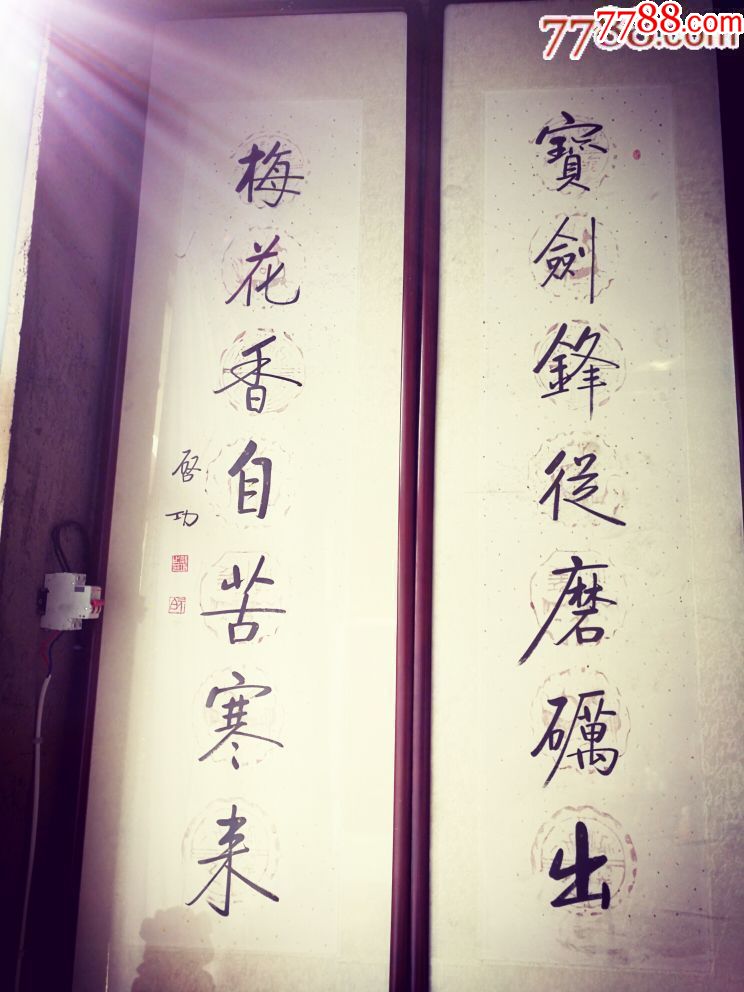 寶劍鋒從磨礪出
梅花香自苦寒来
啓功
7788.com
7788.com